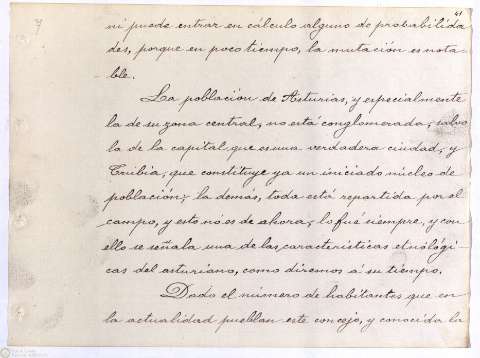 41
ni puede entrar en cálculo alguno de probabilida
des, porque en poco tiempo, la mutación es nota-
-ble.
La población de Asturias, y especialmente
la de su zona central, no está conglomerada, salvo
la de la capital que es una verdadera ciudad, y
Trubia, que constituye ya un iniciado núcleo de
población; la demás, toda está repartida por el
campo, y esto no es de ahora; lo fué siempre, y con
ello se señala una de las características etnológi-
cas del asturiano, como diremos á su tiempo.
Dado el número de habitantes que en
la actualidad pueblan este concejo, y conocida la